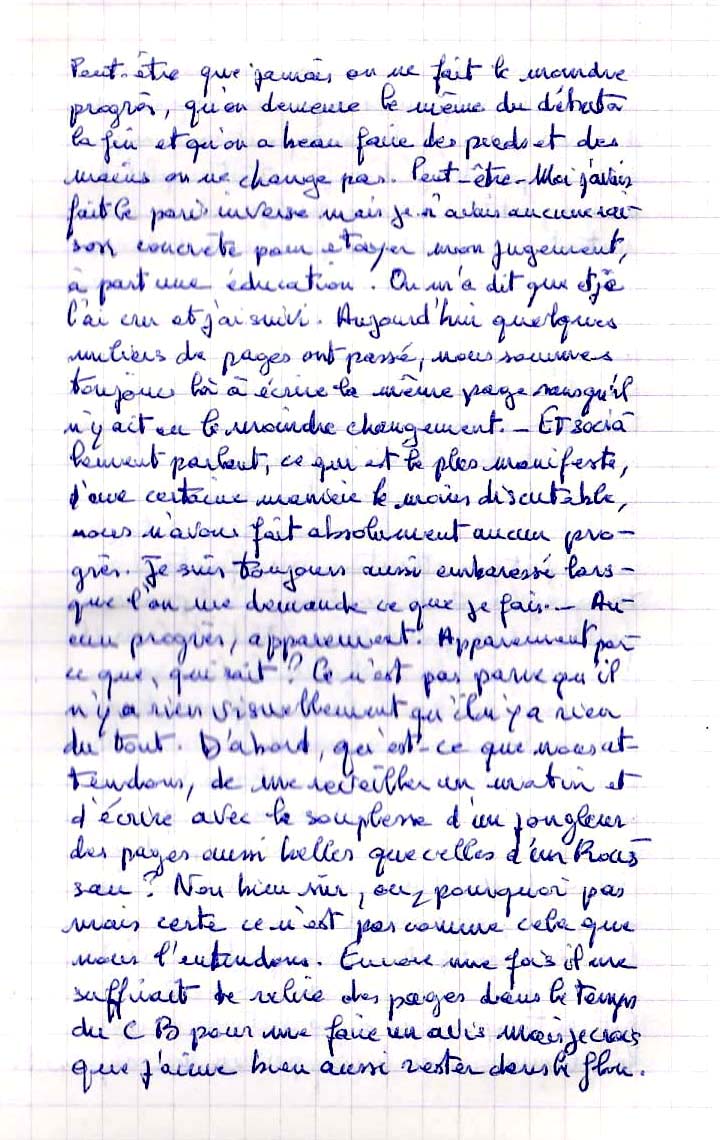 Peut-être que jamais on ne fait le moindre
progrès, qu'on demeure le même du début à
la fin et qu'on a beau faire des pieds et des
mains on ne change pas. Peut-être - Moi j'avais
fait le pari inverse mais je n'avais aucune rai-
son concrète pour étayer mon jugement,
à part une éducation. On m'a dit que et je
l'ai cru et j'ai suivi. Aujourd'hui quelques
milliers de pages ont passé, nous sommes
toujours là à écrire la même page sans qu'il
n'y ait eu le moindre changement. - Et socia-
lement parlant, ce qui est le plus manifeste,
d'une certaine manière le moins discutable,
nous n'avons fait absolument aucun pro-
grès. Je suis toujours aussi embaressé lors-
que l'on me demande ce que je fais. - Au-
cun progrès, apparement. Apparement par-
ce que, qui sait ? Ce n'est pas parce qu'il
n'y a rien visuellement qu'il n'y a rien
du tout. D'abord, qu'est-ce que nous at-
tendons, de me réveiller un matin et
d'écrire avec la souplesse d'un jongleur
des pages aussi belles que celles d'un Rous-
seau ? Non bien sûr, pourquoi pas
mais certe ce n'est pas comme cela que
nous l'entendons. Encore une fois il me
suffirait de relire des pages dans le temps
du C B pour me faire un avis mais je crois
que j'aime bien aussi rester dans le flou.